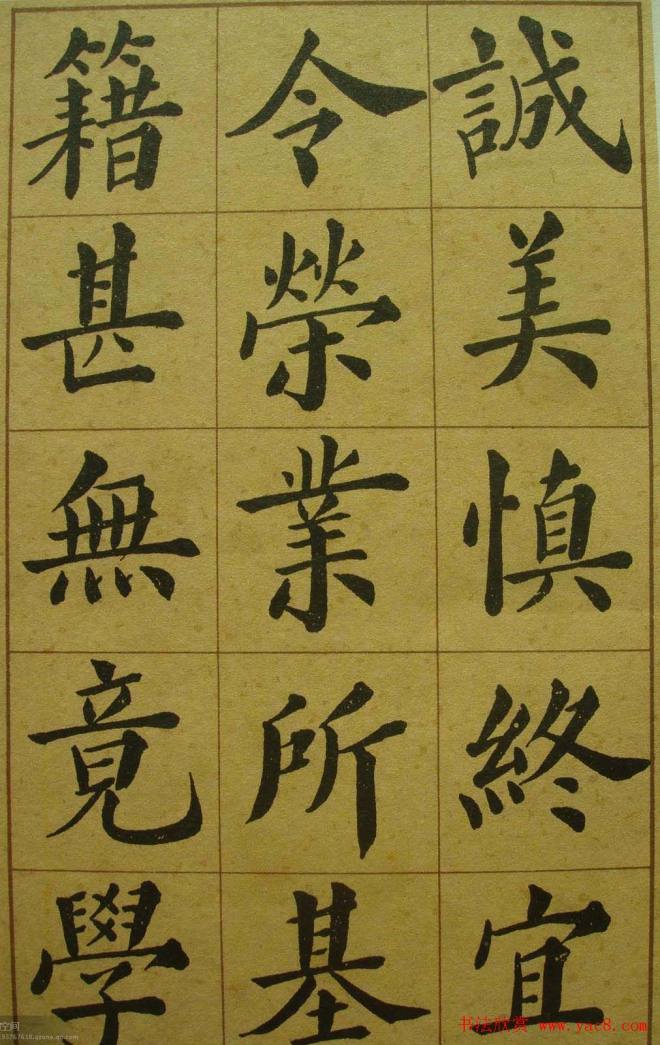 誠美慎終宜
令榮業所基
籍甚無竟學
书法欣赏 www.yac8.com
空间